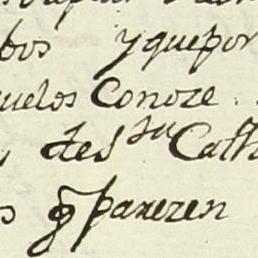 bos yquepor
uelos Conoze
des su Cath
s q parezen